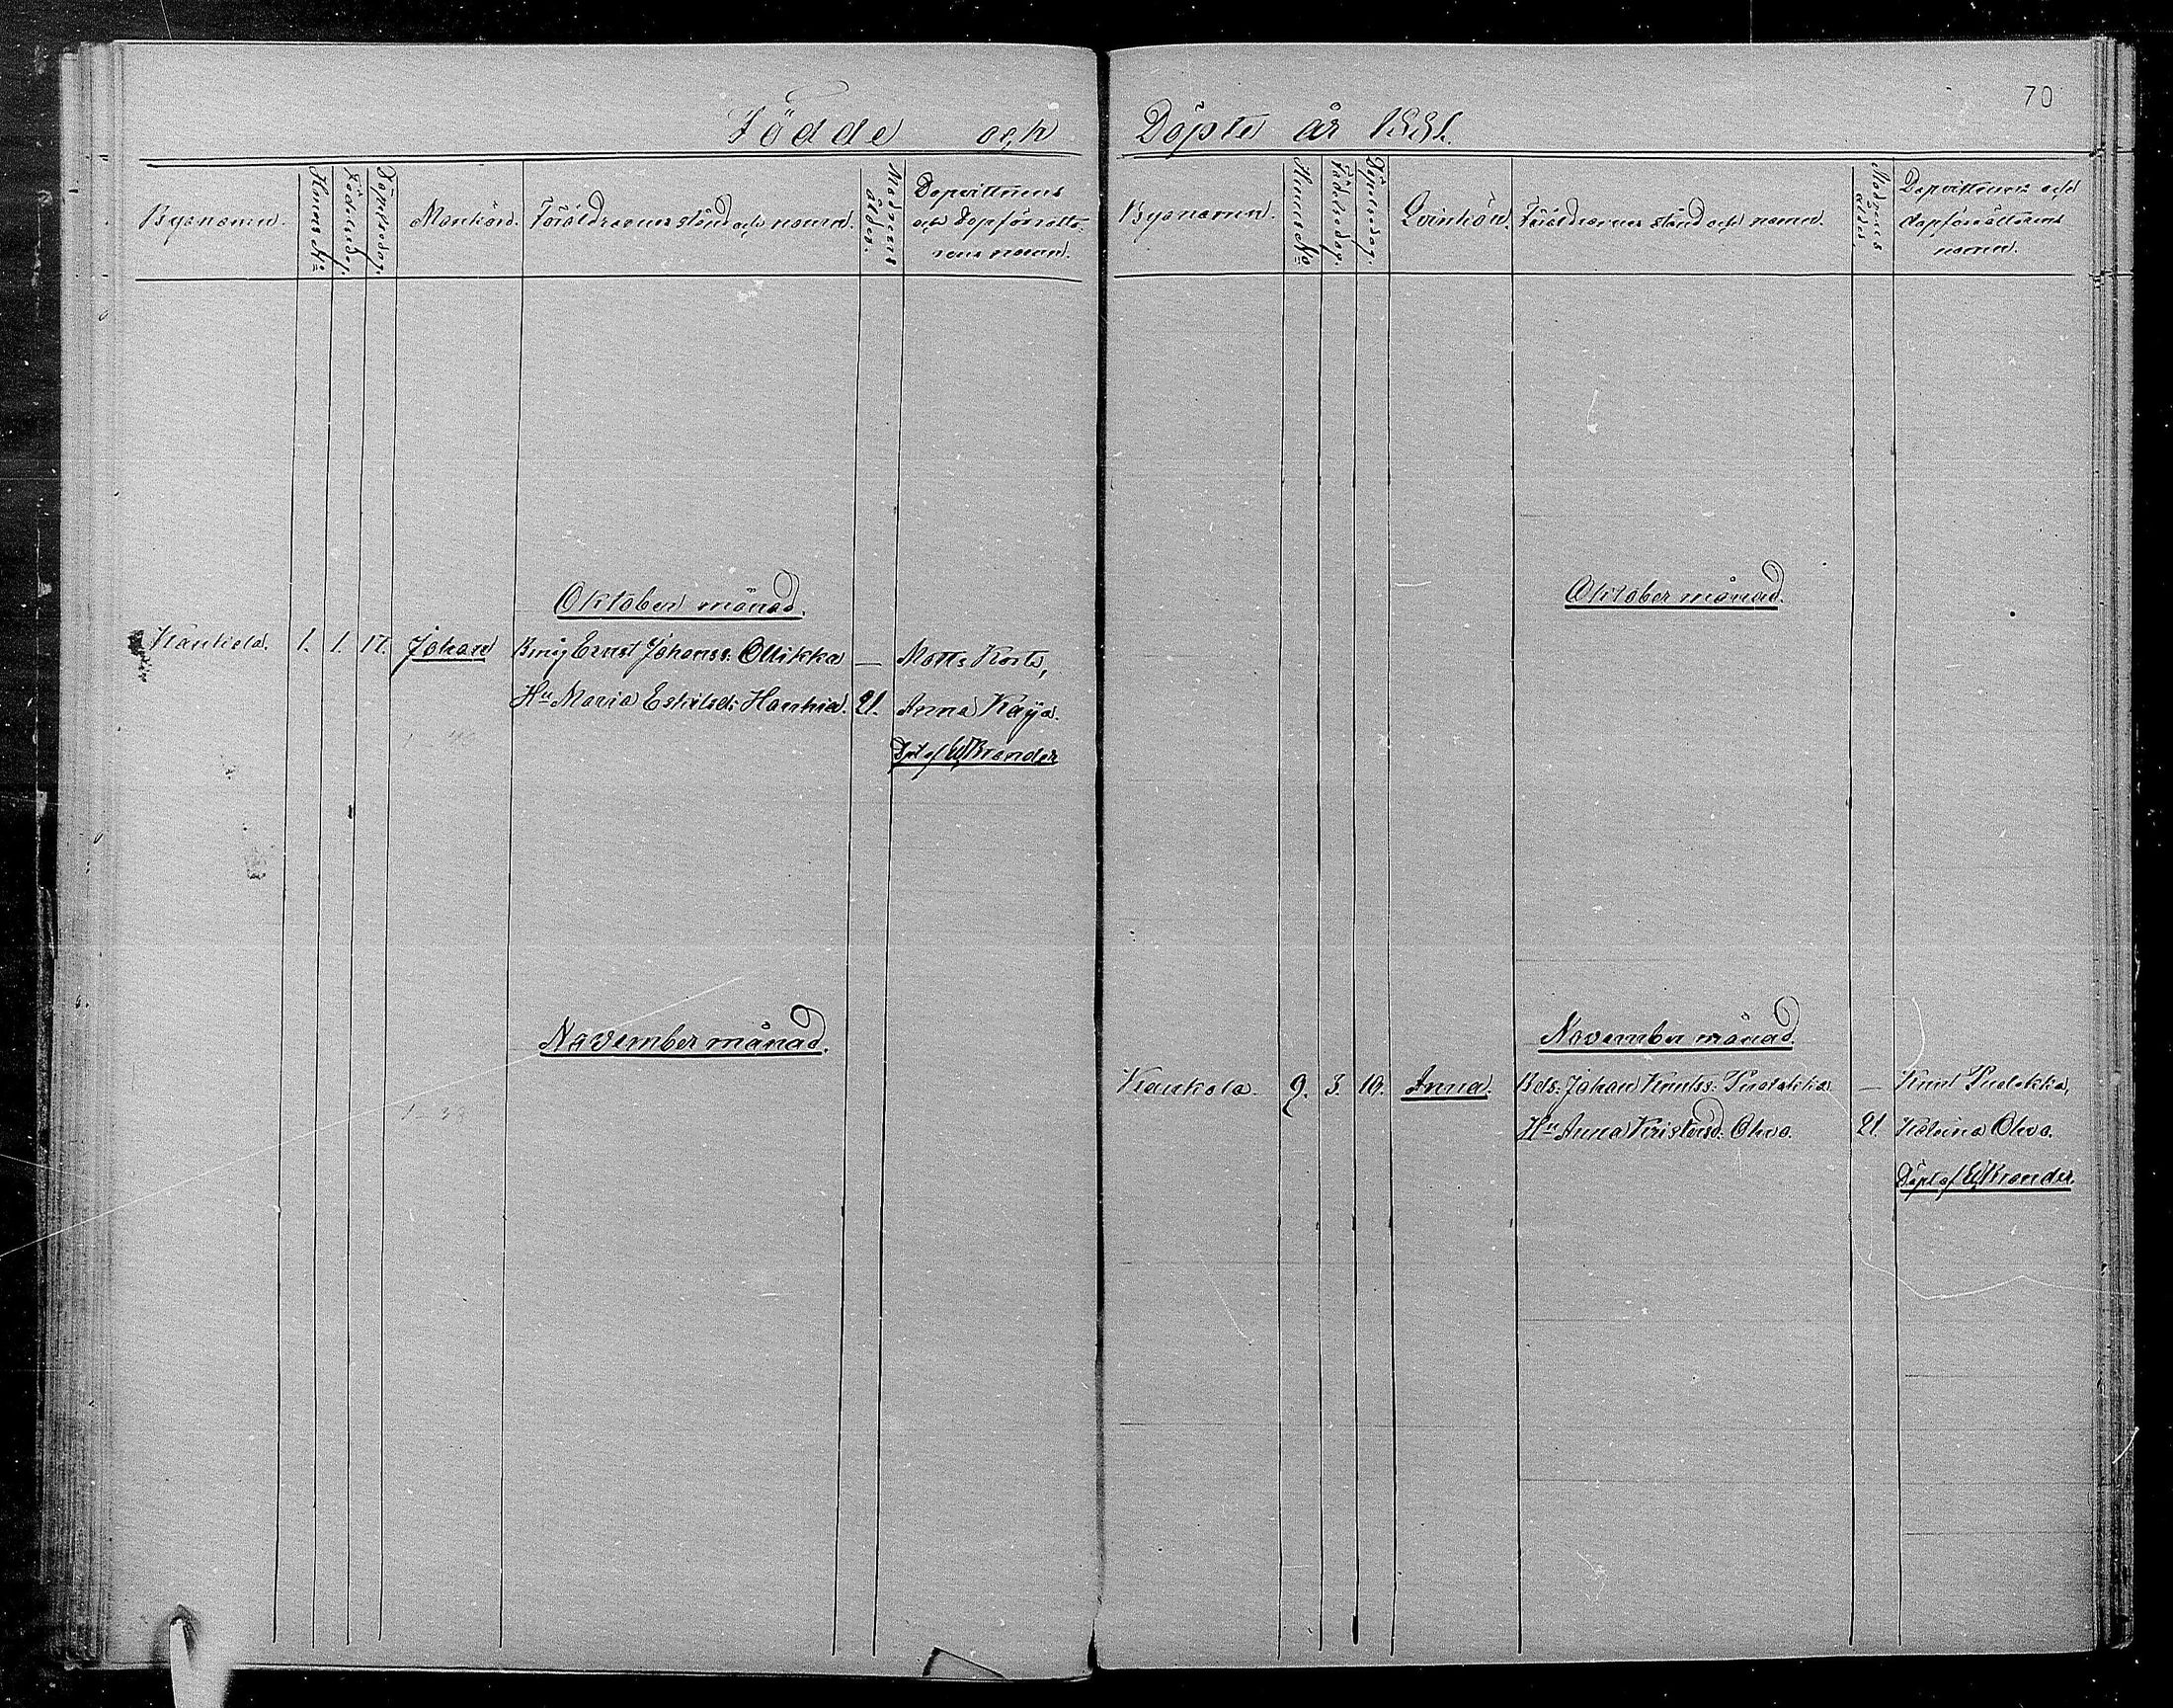 70
Födde och Döpte år 1881.
Bynamn. Hemmets No Födelsedag. Döpelsedag. Mankön. Föräldrarnes stånd och namn. Modrens ålder. Dopvittnens
och Dopförrätta-
rens namn.
Oktober månad.
Kaukola. 1. 1. 17. Johan Ernst Johanss: Ollikka — Matts Korte,
Hu Maria Eskilsd: Haukia. 21. Anna Kaija.
Döpt af Brander
November månad.
Bynamn. Hemmets No Födelsedag. Döpelsedag. Qvinkön. Föräldrarnes stånd och namn. Modrens ålder. Dopvittnens och
dopförrättarens
namn.
Oktober månad.
November månad.
Kaukola. 9. 3. 10. Anna. Johan Knutss: Pudakka — Knut Pudakka,
Hu Anna Kristersd: Ohvo. 21. Helena Ohvo.
Döpt af Brander.